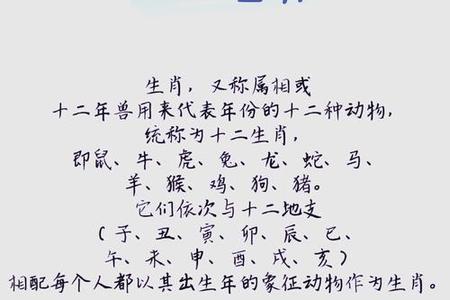 生肖，又称属相或
十二年兽用来代表年份的十二种动物，
统称为十二生肖，
即鼠、牛、虎、兔、龙、蛇、马、
羊、猴、鸡、狗、猪。
它们依次与十二地支
（子、丑、寅、卯、辰、巳、
午、未、申、酉、戌、亥）
相配每个人都以其出生年的象征动物作为生肖。